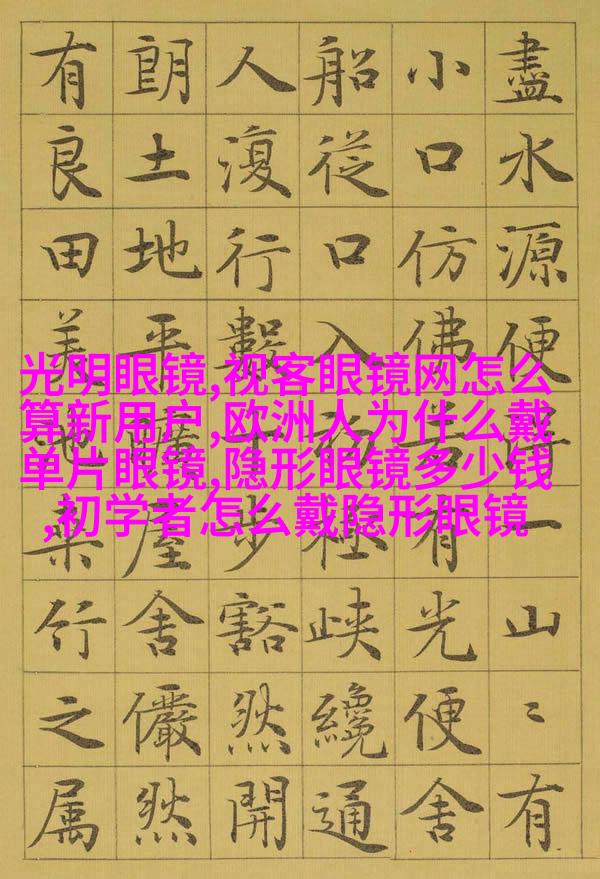 盡水源便得一山〻有
小口仿佛若有光便舍
船從口入初極峡纔通
人復行數十步豁然開
朗土地平曠屋舍儼然
有良田美池桑竹之属
光明眼镜,视客眼镜网怎么
算新用户,欧洲人为什么戴
单片眼镜,隐形眼镜多少钱
,初学者怎么戴隐形眼镜